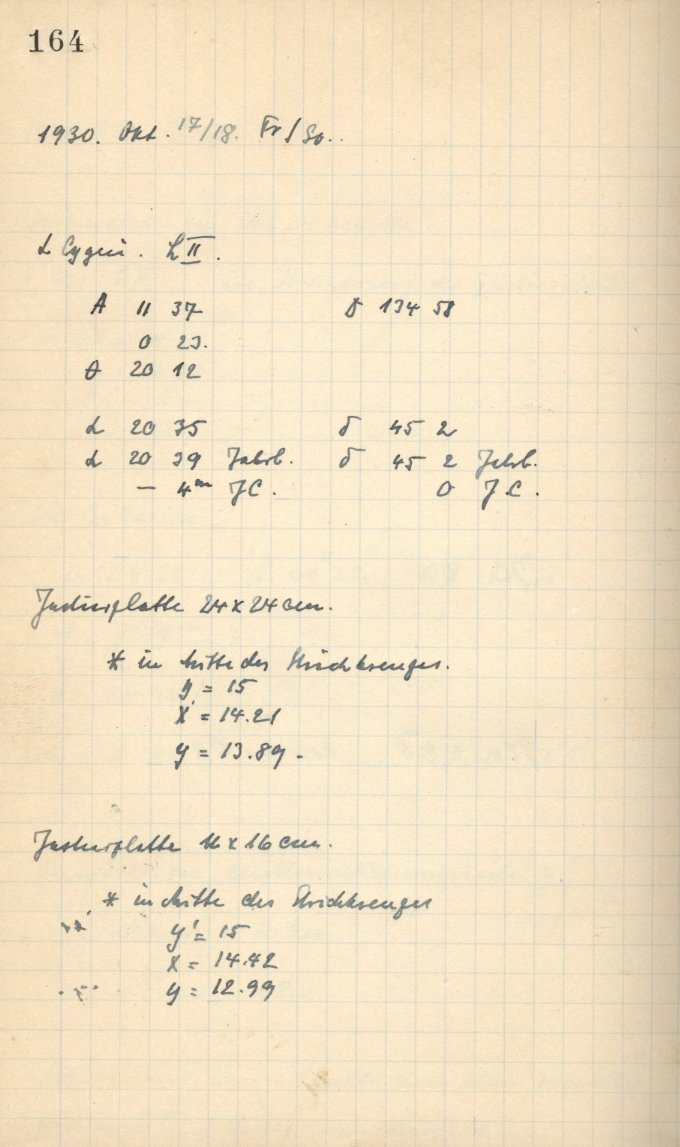 164
1930. Okt. 17/18. Fr/So..
α Cygni. L II.
A 11 37 D 134 58
0 23.
θ 20 12
α 20 35 δ 45 2
α 20 39 Jahrb. δ 45 2 Jahrb.
— 4m JC. 0 J.C.
Justierplatte 24 x 24 cm.
* in Mitte des Strichkreuzes.
y' = 15
x = 14.21
y = 13.89.
Justierplatte 16 x 16 cm.
* in Mitte des Strichkreuzes
y' = 15
x = 14.42
y = 12.99